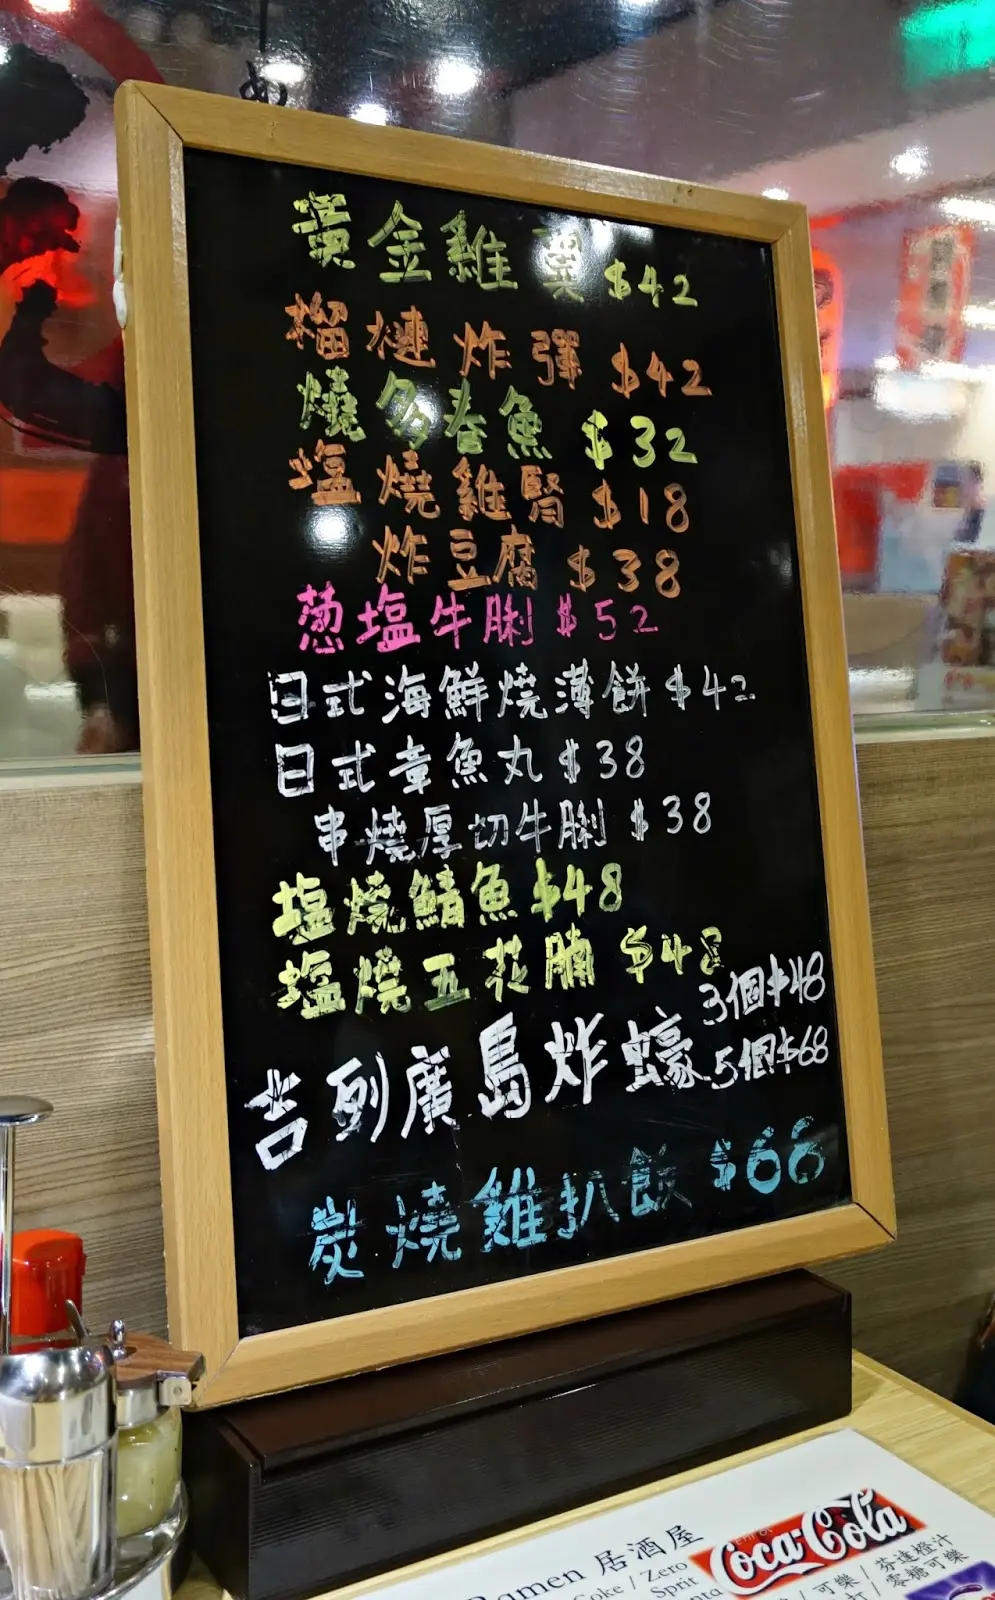 黃金雞翼 $42
榴槤炸彈 $42
燒多春魚 $32
塩燒雞腎 $18
炸豆腐 $38
葱塩牛脷 $52
日式海鮮燒薄餅 $42
日式章魚丸 $38
串燒厚切牛脷 $38
塩燒鯖魚 $48
塩燒五花腩 $48
吉列廣島炸蠔 3個$48
5個$68
炭燒雞扒飯 $68
Ramen 居酒屋
Coke / Zero
Sprit
Coca-Cola
/ 可樂 / 芬達橙汁
/ 零糖可樂